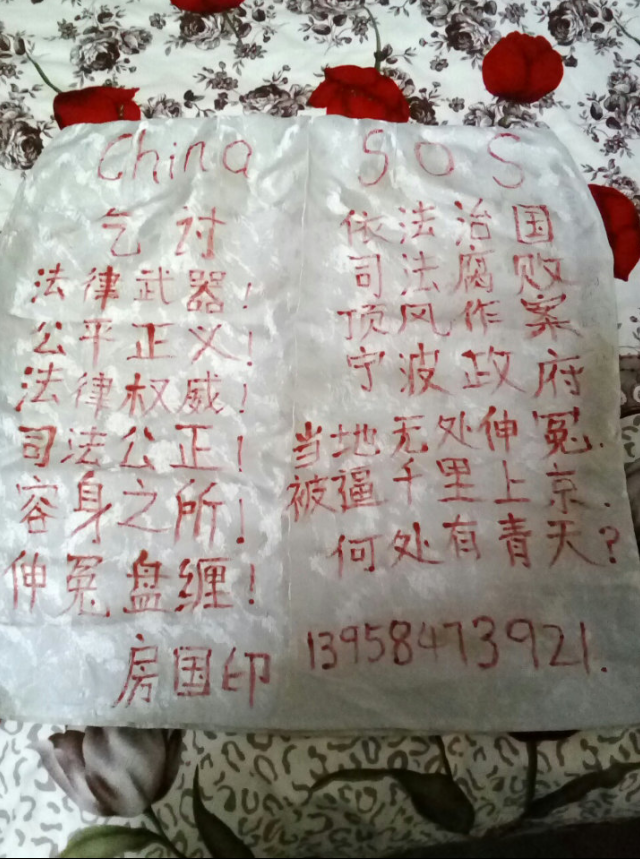 China SOS
乞讨
法律武器!
公平正义!
法律权威!
司法公正!
容身之所!
伸冤盘缠!
房国印
依法治国
司法腐败
顶风作案
宁波政府
当地无处伸冤.
被逼千里上京.
何处有青天?
13958473921.